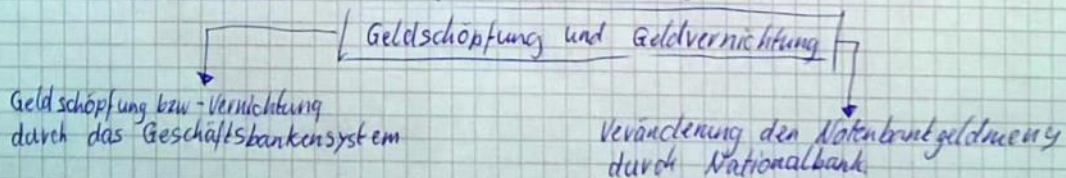 Geldschöpfung und Geldvernichtung
Geldschöpfung bzw -Vernichtung
durch das Geschäftsbankensystem
Veränderung den Notenbankgeldmeng
durch Nationalbank